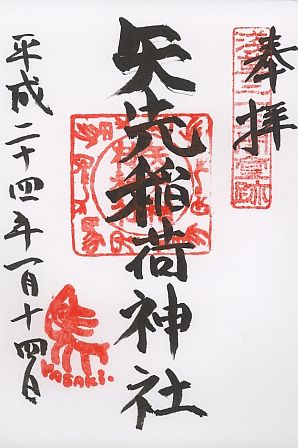 奉拝
矢先稲荷神社
平成二十四年一月十四日
YASAKI.